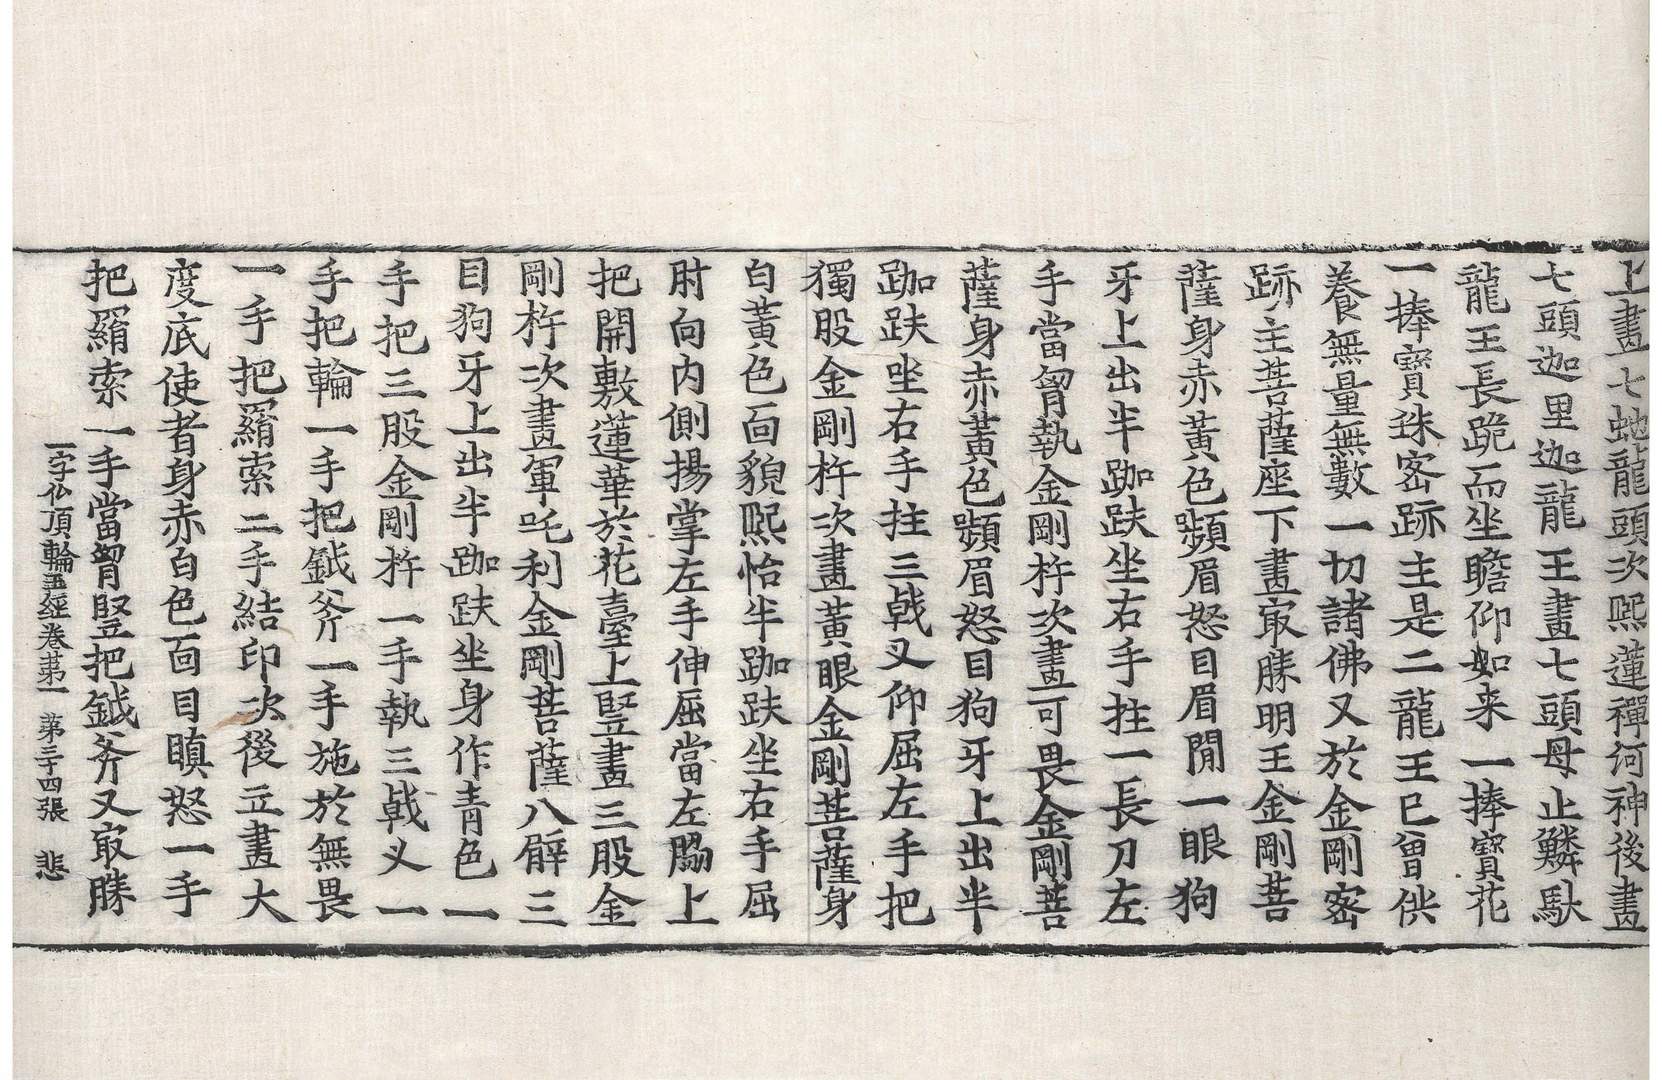 上畫七虵龍頭次熙蓮禪河神後畫
七頭迦里迦龍王畫七頭母止鱗馱
龍王長跪而坐瞻仰如来一捧寶花
一捧寶珠宻跡主是二龍王已曾供
養無量無數一切諸佛又於金剛宻
跡主菩薩座下畫冣勝明王金剛菩
薩身赤黃色顰眉怒目眉間一眼狗
牙上出半跏趺坐右手拄一長刀左
手當胷執金剛杵次畫可畏金剛菩
薩身赤黃色顰眉怒目狗牙上出半
跏趺唑右手拄三戟叉仰屈左手把
獨股金剛杵次畫黃眼金剛菩薩身
白黃色面貌熙怡半跏趺坐右手屈
肘向內側揚掌左手伸屈當左脇上
把開敷蓮華於花臺上竪畫三股金
剛杵次畫軍吒利金剛菩薩八臂三
目狗牙上出半跏趺坐身作青色一
手把三股金剛杵一手執三戟叉一
手把輪一手把鉞斧一手施於無畏
一手把羂索二手結印次後立畫大
度底使者身赤白色面目瞋怒一手
把羂索一手當胷竪把鉞斧又冣勝
一字仏頂輪王經卷苐一 苐三十四張 悲